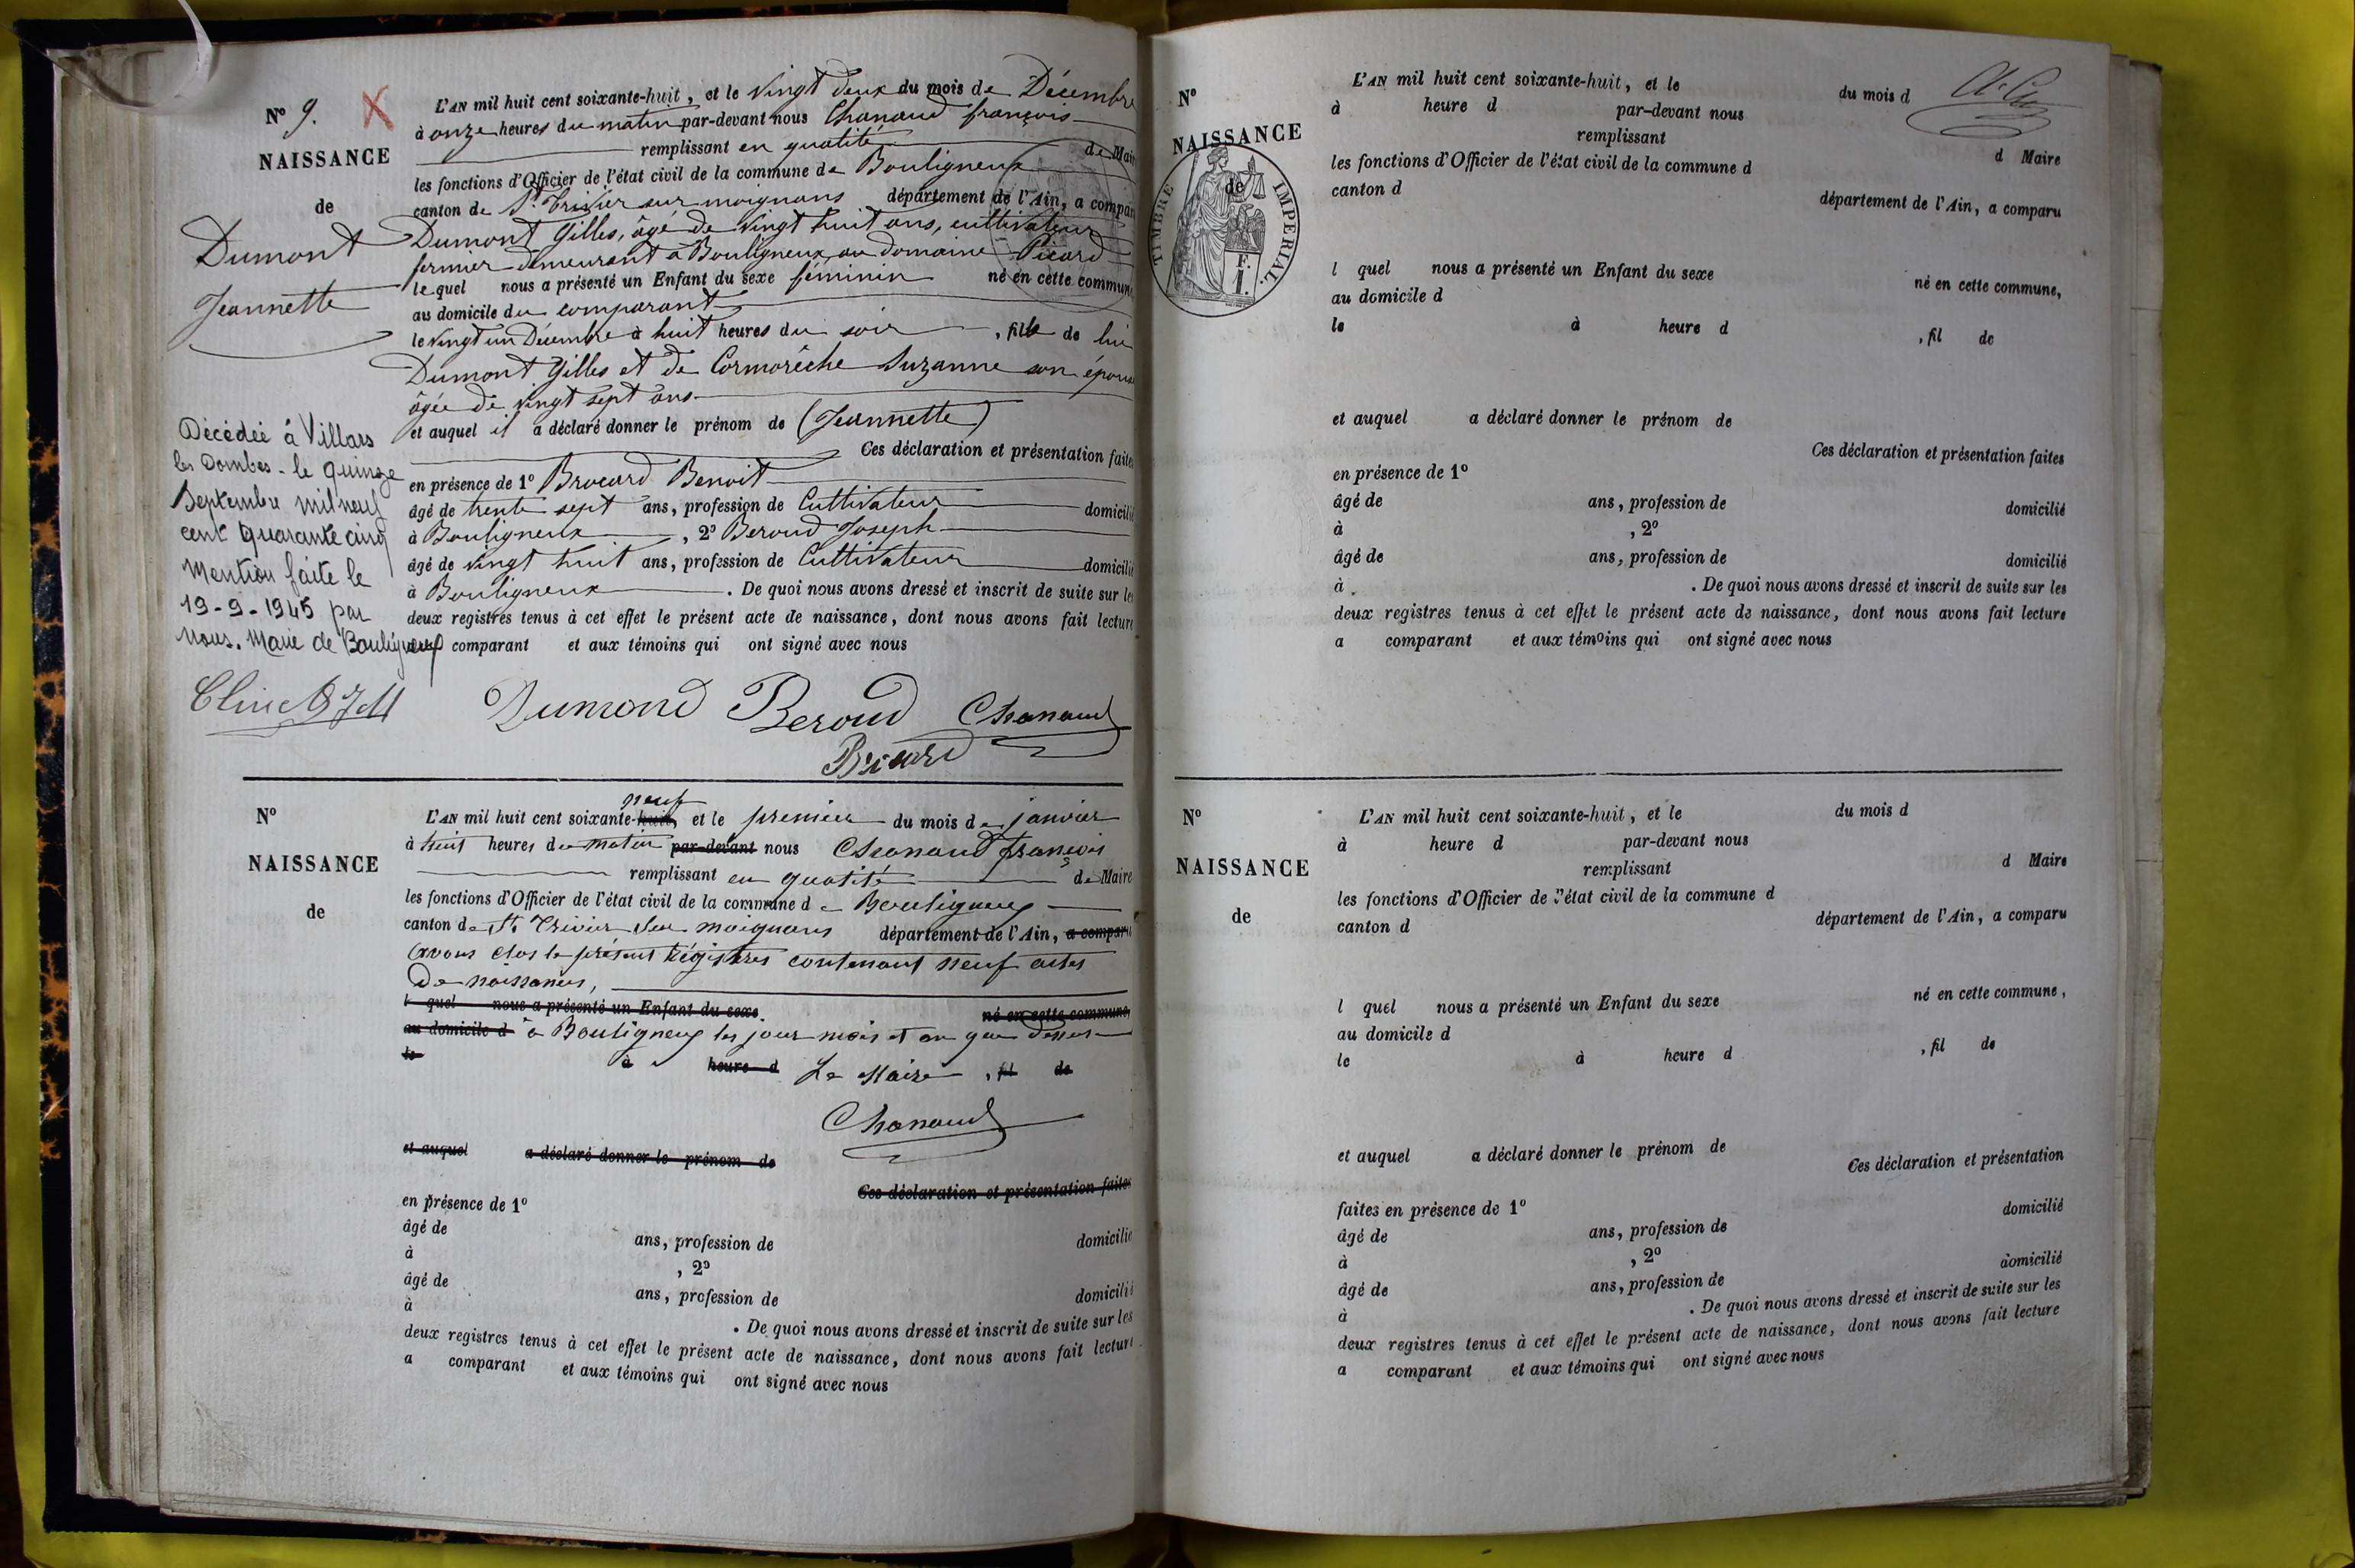 N° 9. X
NAISSANCE
de
Dumont
Jeannette
L'AN mil huit cent soixante-huit, et le vingt deux du mois de Décembre
à onze heures du matin par-devant nous Chanaud françois
remplissant en qualité de Mair
les fonctions d'Officier de l'état civil de la commune de Bouligneux
canton de St. Trivier sur moignans département de l'Ain, a compar
Dumont Gilles, âgé de vingt huit ans, cultivateur
fermier demeurant à Bouligneux au domaine Picard
lequel nous a présenté un Enfant du sexe féminin né en cette commune
au domicile du comparant
le vingt un Décembre à huit heures du soir, fille de lui
Dumont Gilles et de Cormorèche Suzanne son épouse
âgée de vingt sept ans
et auquel il a déclaré donner le prénom de (Jeannette)
Ces déclaration et présentation faites
en présence de 1° Brocard Benoit
âgé de trente sept ans, profession de Cultivateur domicilié
à Bouligneux, 2° Beroud Joseph
âgé de vingt huit ans, profession de Cultivateur domicilié
à Bouligneux. De quoi nous avons dressé et inscrit de suite sur les
deux registres tenus à cet effet le présent acte de naissance, dont nous avons fait lecture
comparant et aux témoins qui ont signé avec nous
Décédée à Villars
les Dombes - le quinze
Septembre mil neuf
cent quarante cinq
Mention faite le
19-9-1945 par
Nous. Maire de Bouligneux
Dumond Beroud Chanaud
Brocard
N°
NAISSANCE
de
neuf
L'AN mil huit cent soixante-huit, et le premier du mois de janvier
à huit heures du matin par-devant nous Chanaud françois
remplissant en qualité de Maire
les fonctions d'Officier de l'état civil de la commune de Bouligneux
canton de St Trivier sur moignans département de l'Ain, a comparu
avons clos le présent Régistres contenant neuf actes
De naissances,
l quel nous a présenté un Enfant du sexe né en cette commune,
au domicile d à Bouligneux les jour mois et an que dessus
le à heure d Le Maire, fil de
Chanaud
et auquel a déclaré donner le prénom de
Ces déclaration et présentation faites
en présence de 1°
âgé de ans, profession de domicilié
à , 2°
âgé de ans, profession de domicilié
à . De quoi nous avons dressé et inscrit de suite sur les
deux registres tenus à cet effet le présent acte de naissance, dont nous avons fait lecture
a comparant et aux témoins qui ont signé avec nous
N°
NAISSANCE
de
TIMBRE IMPERIAL.
F.
1.
L'AN mil huit cent soixante-huit, et le du mois d
à heure d par-devant nous
remplissant d Maire
les fonctions d'Officier de l'état civil de la commune d
canton d département de l'Ain, a comparu
l quel nous a présenté un Enfant du sexe né en cette commune,
au domicile d
le à heure d , fil de
et auquel a déclaré donner le prénom de
Ces déclaration et présentation faites
en présence de 1°
âgé de ans, profession de domicilié
à , 2°
âgé de ans, profession de domicilié
à . De quoi nous avons dressé et inscrit de suite sur les
deux registres tenus à cet effet le présent acte de naissance, dont nous avons fait lecture
a comparant et aux témoins qui ont signé avec nous
N°
NAISSANCE
de
L'AN mil huit cent soixante-huit, et le du mois d
à heure d par-devant nous
remplissant d Maire
les fonctions d'Officier de l'état civil de la commune d
canton d département de l'Ain, a comparu
l quel nous a présenté un Enfant du sexe né en cette commune,
au domicile d
le à heure d , fil de
et auquel a déclaré donner le prénom de
Ces déclaration et présentation
faites en présence de 1° domicilié
âgé de ans, profession de
à , 2° domicilié
âgé de ans, profession de
à . De quoi nous avons dressé et inscrit de suite sur les
deux registres tenus à cet effet le présent acte de naissance, dont nous avons fait lecture
a comparant et aux témoins qui ont signé avec nous